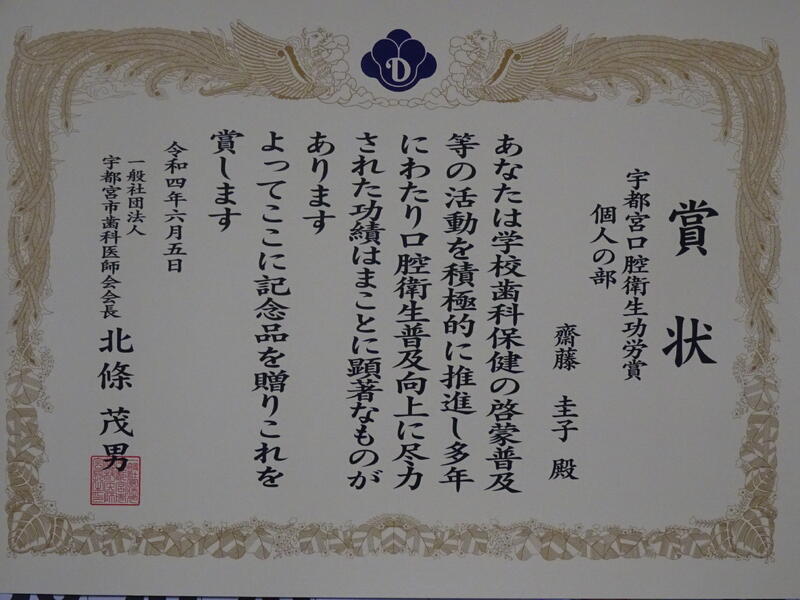 D
賞状
宇都宮口腔衛生功労賞
個人の部
齋藤 圭子 殿
あなたは学校歯科保健の啓蒙普及
等の活動を積極的に推進し多年
にわたり口腔衛生普及向上に尽力
された功績はまことに顕著なものが
あります
よってここに記念品を贈りこれを
賞します
令和四年六月五日
一般社団法人
宇都宮市歯科医師会会長 北條 茂男